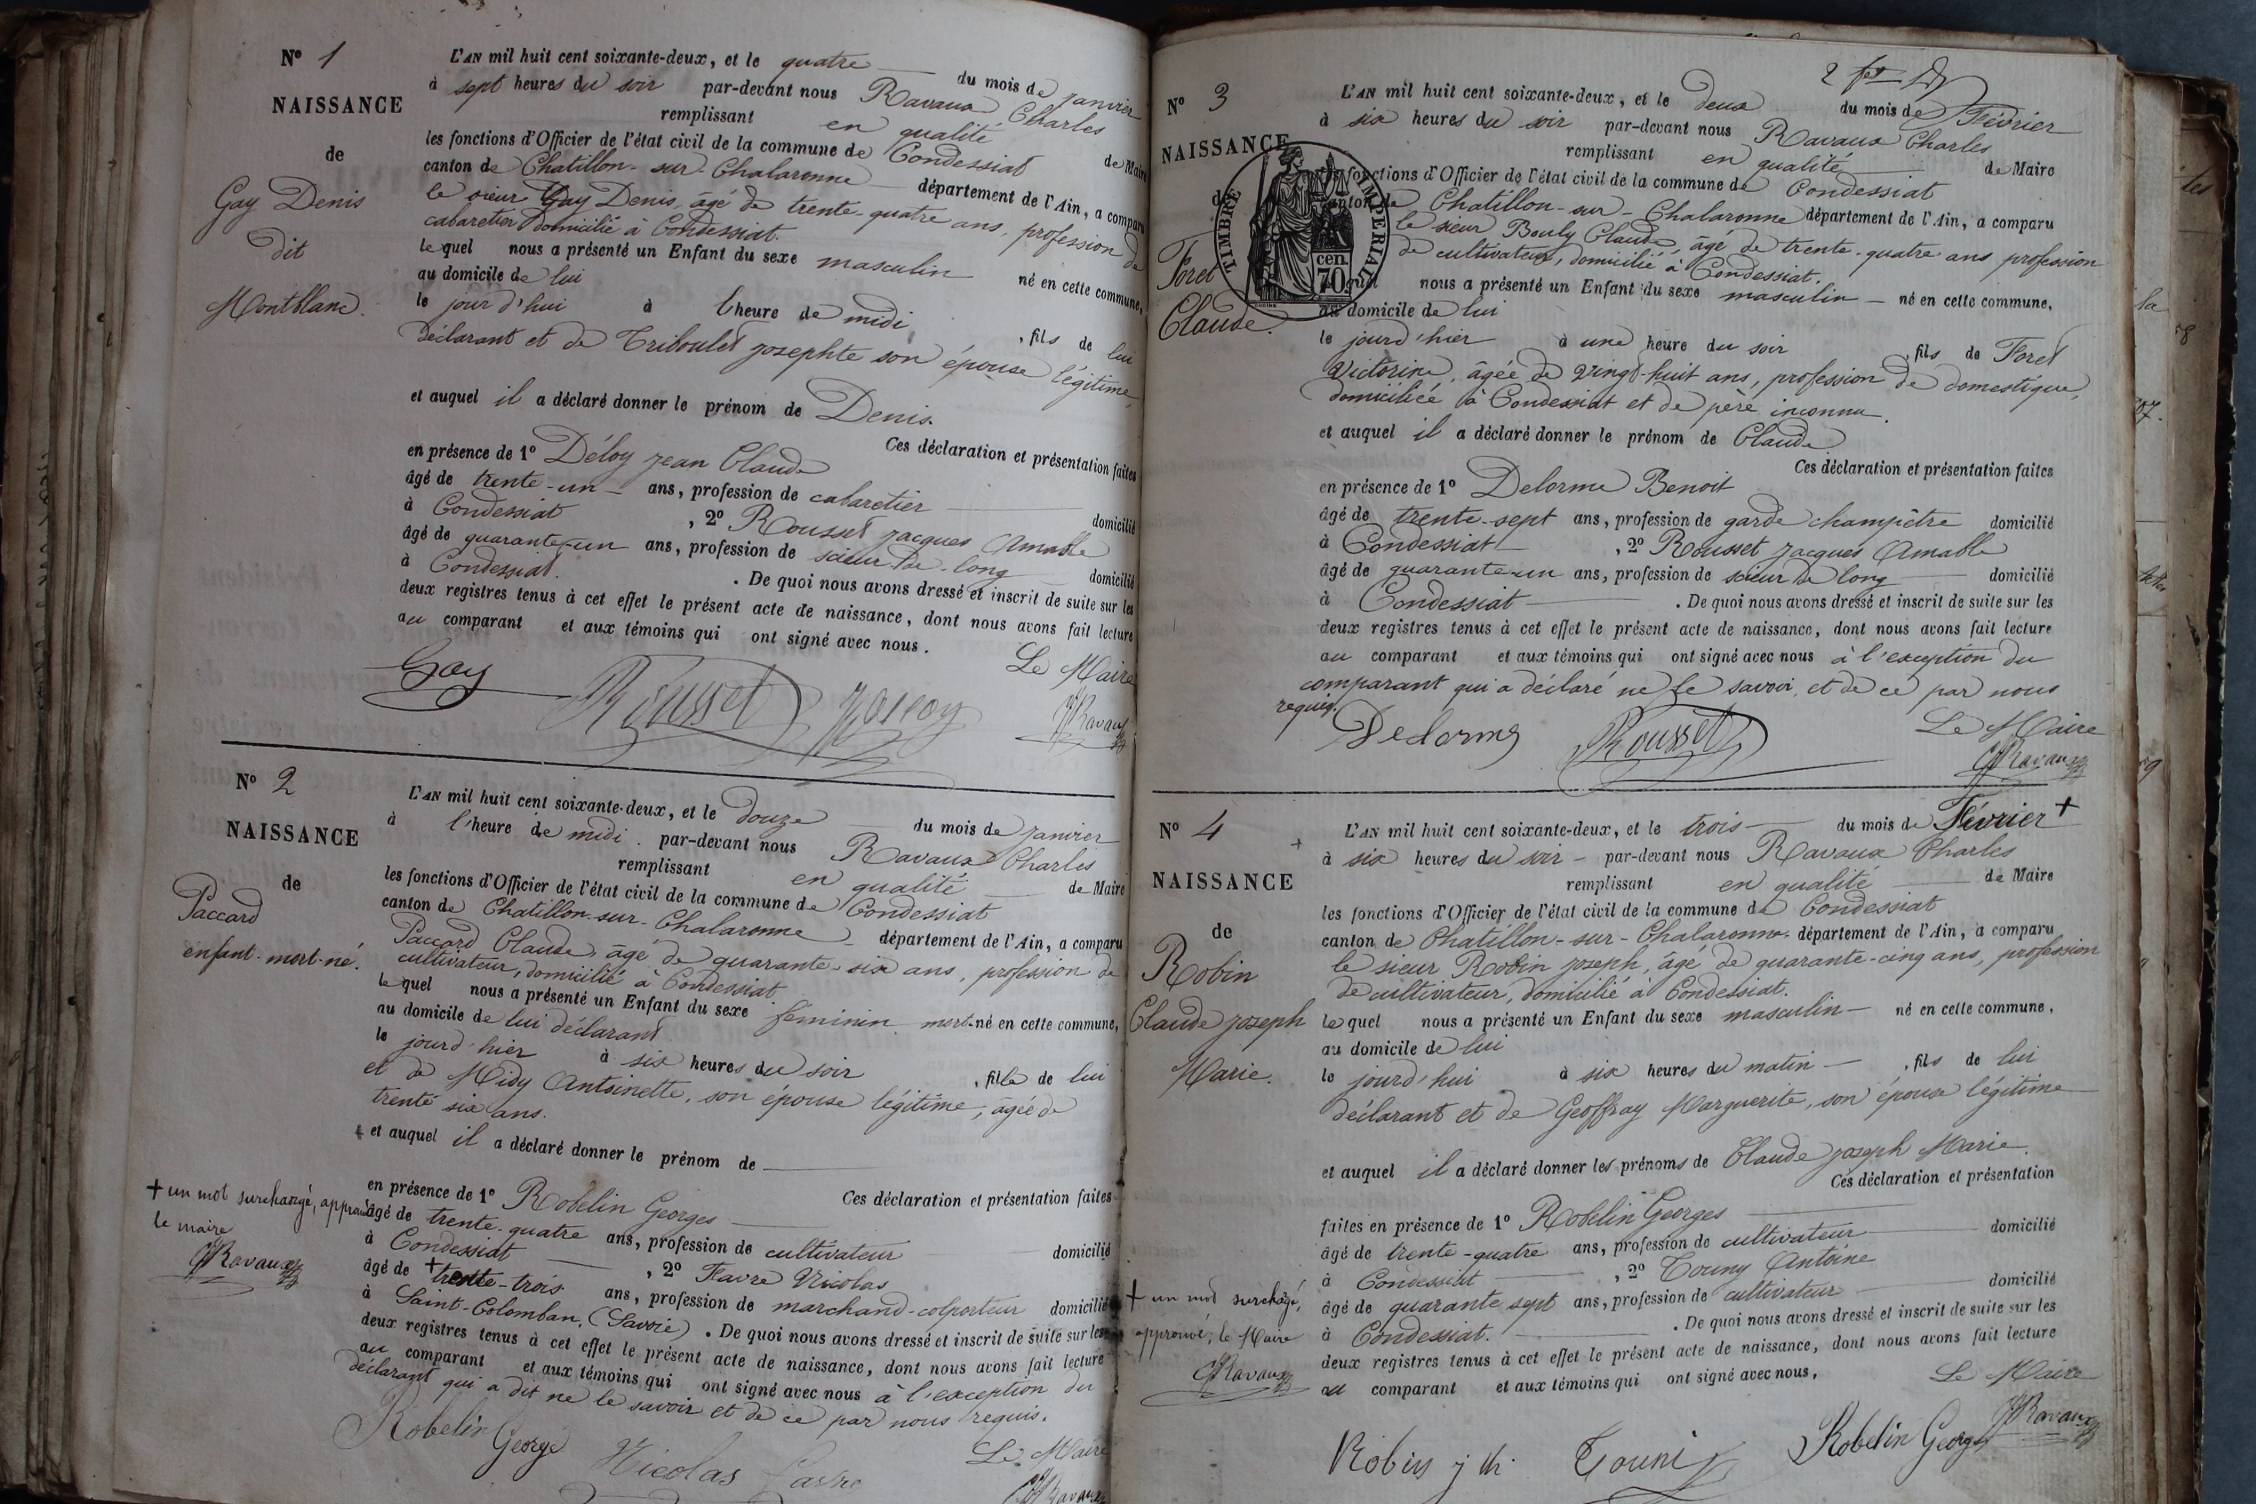 N° 1
NAISSANCE
de
Gay Denis
dit
Montblanc.
L'AN mil huit cent soixante-deux, et le quatre du mois de janvier
à sept heures du soir par-devant nous Ravaux Charles
remplissant en qualité de Maire
les fonctions d'Officier de l'état civil de la commune de Condessiat
canton de Chatillon-sur-Chalaronne département de l'Ain, a comparu
le sieur Gay Denis, âgé de trente-quatre ans, profession de
cabaretier domicilié à Condessiat.
lequel nous a présenté un Enfant du sexe masculin né en cette commune,
au domicile de lui
le jour d'hui à l'heure de midi, fils de lui
déclarant et de Triboulet josephte son épouse légitime,
et auquel il a déclaré donner le prénom de Denis.
Ces déclaration et présentation faites
en présence de 1° Déloy jean Claude
âgé de trente-un ans, profession de cabaretier domicilié
à Condessiat, 2° Rousset jacques Amable
âgé de quarante-un ans, profession de scieur de long domicilié
à Condessiat. De quoi nous avons dressé et inscrit de suite sur les
deux registres tenus à cet effet le présent acte de naissance, dont nous avons fait lecture
au comparant et aux témoins qui ont signé avec nous.
Le Maire
Gay Rousset Ravaux
N° 2
NAISSANCE
de
Paccard
enfant-mort-né.
L'AN mil huit cent soixante-deux, et le douze du mois de janvier
à l'heure de midi. par-devant nous Ravaux Charles
remplissant en qualité de Maire
les fonctions d'Officier de l'état civil de la commune de Condessiat
canton de Chatillon-sur-Chalaronne département de l'Ain, a comparu
Paccard Claude, âgé de quarante-six ans, profession de
cultivateur, domicilié à Condessiat
lequel nous a présenté un Enfant du sexe féminin mort-né en cette commune,
au domicile de lui déclarant
le jourd'hier à six heures du soir, fille de lui
et de Midy Antoinette, son épouse légitime, âgée de
trente six ans.
et auquel il a déclaré donner le prénom de
Ces déclaration et présentation faites
en présence de 1° Robelin Georges
âgé de trente-quatre ans, profession de cultivateur domicilié
à Condessiat, 2° Favre Nicolas
âgé de + trente-trois ans, profession de marchand-colporteur domicilié
à Saint-Colomban, (Savoie). De quoi nous avons dressé et inscrit de suite sur les
deux registres tenus à cet effet le présent acte de naissance, dont nous avons fait lecture
au comparant et aux témoins qui ont signé avec nous à l'exception du
déclarant qui a dit ne le savoir et de ce par nous requis.
Le Maire
Robelin George Nicolas Favre Ravaux
+ un mot surchargé, approuvé
le maire
Ravaux
2 fev
N° 3
NAISSANCE
de
Foret
Claude.
TIMBRE IMPERIAL
70 cen.
L'AN mil huit cent soixante-deux, et le deux du mois de Février
à six heures du soir par-devant nous Ravaux Charles
remplissant en qualité de Maire
les fonctions d'Officier de l'état civil de la commune de Condessiat
canton de Chatillon-sur-Chalaronne département de l'Ain, a comparu
le sieur Bouly Claude, âgé de trente-quatre ans profession
de cultivateur, domicilié à Condessiat.
lequel nous a présenté un Enfant du sexe masculin né en cette commune,
au domicile de lui
le jourd'hier à une heure du soir, fils de Foret
Victorine, âgée de vingt-huit ans, profession de domestique,
domiciliée à Condessiat et de père inconnu.
et auquel il a déclaré donner le prénom de Claude
Ces déclaration et présentation faites
en présence de 1° Delorme Benoit
âgé de trente-sept ans, profession de garde champêtre domicilié
à Condessiat, 2° Rousset jacques Amable
âgé de quarante-un ans, profession de scieur de long domicilié
à Condessiat. De quoi nous avons dressé et inscrit de suite sur les
deux registres tenus à cet effet le présent acte de naissance, dont nous avons fait lecture
au comparant et aux témoins qui ont signé avec nous à l'exception du
comparant qui a déclaré ne le savoir, et de ce par nous
requis.
Le Maire
Delorme Rousset Ravaux
N° 4
NAISSANCE
de
Robin
Claude joseph
Marie.
L'AN mil huit cent soixante-deux, et le trois du mois de Février +
à six heures du soir par-devant nous Ravaux Charles
remplissant en qualité de Maire
les fonctions d'Officier de l'état civil de la commune de Condessiat
canton de Chatillon-sur-Chalaronne département de l'Ain, a comparu
le sieur Robin joseph, âgé de quarante-cinq ans, profession
de cultivateur, domicilié à Condessiat.
lequel nous a présenté un Enfant du sexe masculin né en cette commune,
au domicile de lui
le jourd'hui à six heures du matin, fils de lui
déclarant et de Geoffray Marguerite, son épouse légitime
et auquel il a déclaré donner les prénoms de Claude joseph Marie.
Ces déclaration et présentation
faites en présence de 1° Robelin Georges
âgé de trente-quatre ans, profession de cultivateur domicilié
à Condessiat, 2° Touny Antoine
âgé de quarante sept ans, profession de cultivateur domicilié
à Condessiat. De quoi nous avons dressé et inscrit de suite sur les
deux registres tenus à cet effet le présent acte de naissance, dont nous avons fait lecture
au comparant et aux témoins qui ont signé avec nous,
Le Maire
Robin j ph Touni Robelin George Ravaux
+ un mot surchargé,
approuvé, le Maire
Ravaux